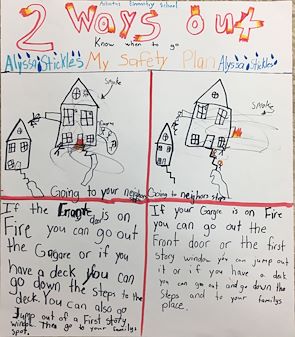 Elementary School
2 Ways out
Know when to go
Alyssa Stickles My Safety Plan Alyssa Stickles
Smoke
Smoke
Going to your neighbors
Going to neighbors
If the Front door is on
Fire you can go out
the Gagare or if you
have a deck you can
go down the steps to the
deck. You can also go
Jump out of a First story
window. Then go to your familys
spot.
If your Gargre is on Fire
you can go out the
Front door or the first
story window you can jump out
it or if you have a deck
you can go out and go down the
Steps and to your familys
place.